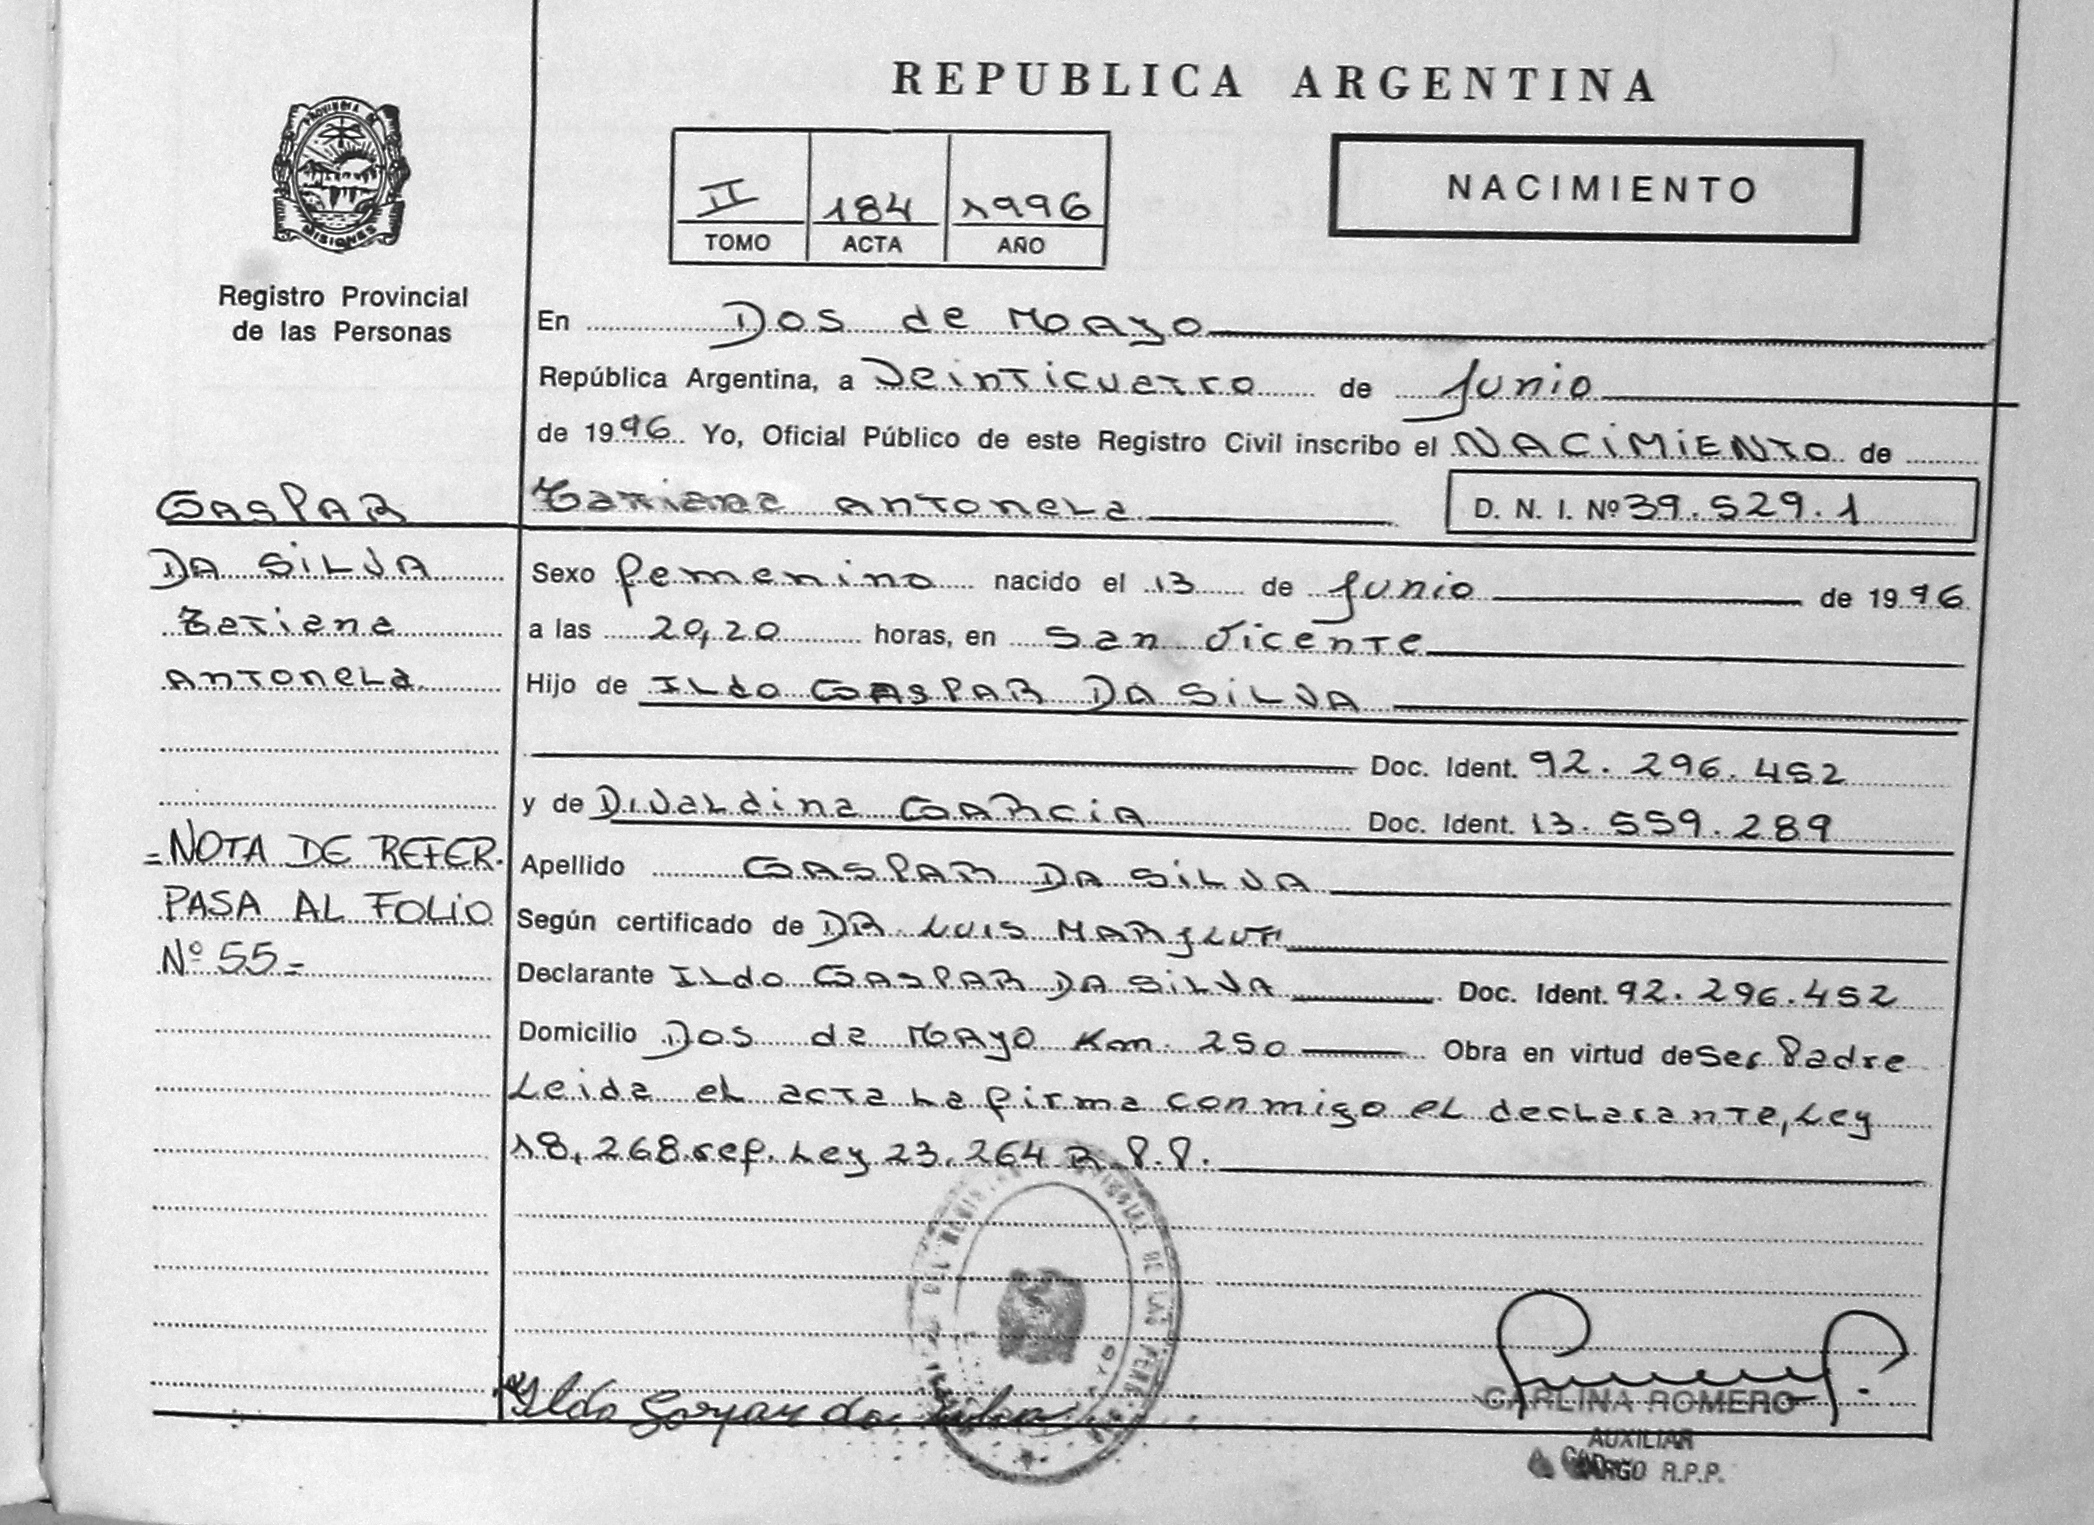 REPUBLICA ARGENTINA
PROVINCIA DE
MISIONES
Registro Provincial
de las Personas
II 184 1996
TOMO ACTA AÑO
NACIMIENTO
En Dos de Mayo
República Argentina, a Veinticuatro de Junio
de 1996 Yo, Oficial Público de este Registro Civil inscribo el NACIMIENTO de
Tatiana Antonela
D. N. I. Nº 39.529.1
GASPAR
DA SILVA
Tatiana
Antonela
Sexo femenino nacido el 13 de Junio de 1996
a las 20,20 horas, en San Vicente
Hijo de Ildo GASPAR DA SILVA
Doc. Ident. 92.296.452
y de Divaldina GARCIA Doc. Ident. 13.559.289
=NOTA DE REFER.
PASA AL FOLIO
Nº 55=
Apellido GASPAR DA SILVA
Según certificado de DR. LUIS
Declarante Ildo GASPAR DA SILVA Doc. Ident. 92.296.452
Domicilio Dos de Mayo Km. 250 Obra en virtud de Ser Padre
Leida el acta la firma conmigo el declarante, Ley
18,268.ref. Ley 23.264 R.P.P.
DE LAS
Ildo Gaspar da Silva
CARLINA ROMERO
AUXILIAR
A CARGO R.P.P.